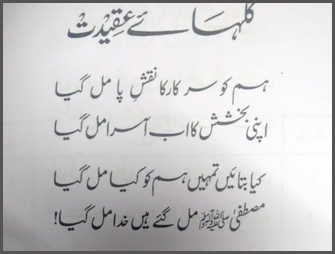 گلہائے عقیدت
ہم کو سرکار کا نقشِ پا مل گیا
اپنی بخشش کا اب آسرا مل گیا
کیا بتائیں تمہیں ہم کو کیا مل گیا
مصطفیٰ ﷺ مل گئے ہیں خدا مل گیا!